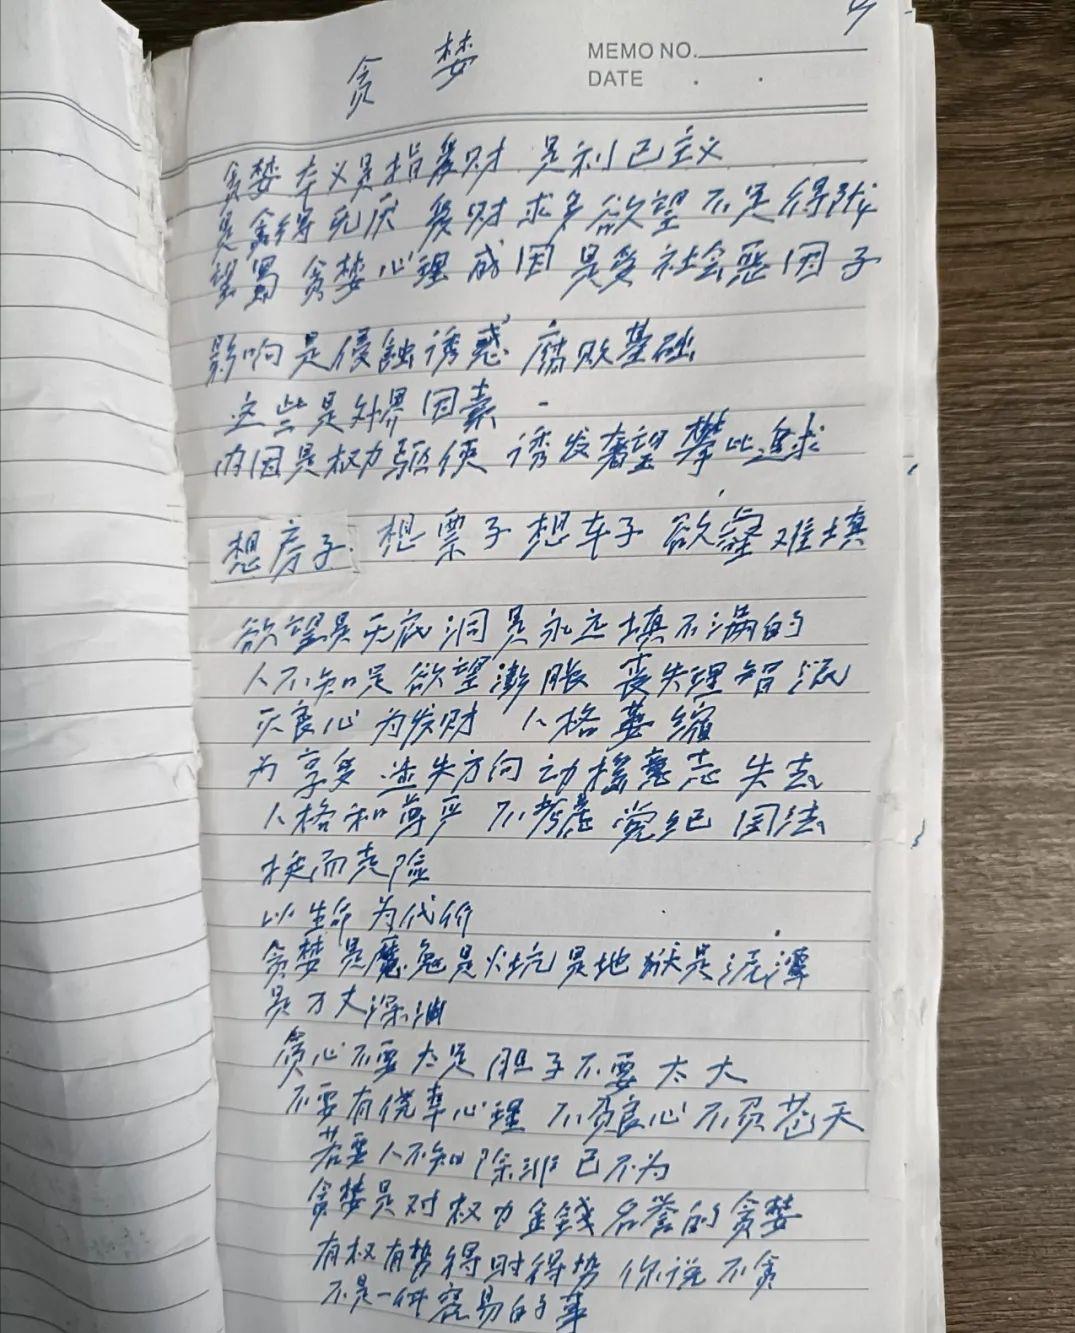 贪婪
MEMO NO.
DATE
贪婪本义是指爱财 是利已主义
是贪得无厌 爱财求多欲望不足得陇
望蜀 贪婪心理成因是受社会恶因子
影响是侵蚀诱惑 腐败基础
这些是外界因素
内因是权力驱使 诱发奢望攀比追求
想房子 想票子想车子 欲壑难填
欲望是无底洞是永远填不满的
人不知足欲望澎胀 丧失理智泯
灭良心为发财 人格萎缩
为享受迷失方向动摇意志失去
人格和尊严 不考虑党纪国法
挺而走险
以生命为代价
贪婪是魔鬼是火坑是地狱是泥潭
是万丈深渊
贪心不要太足 胆子不要太大
不要有侥幸心理 不负良心不负苍天
若要人不知除非已不为
贪婪是对权力金錢名誉的贪婪
有权有势得时得势 你说不贪
不是一件容易的事